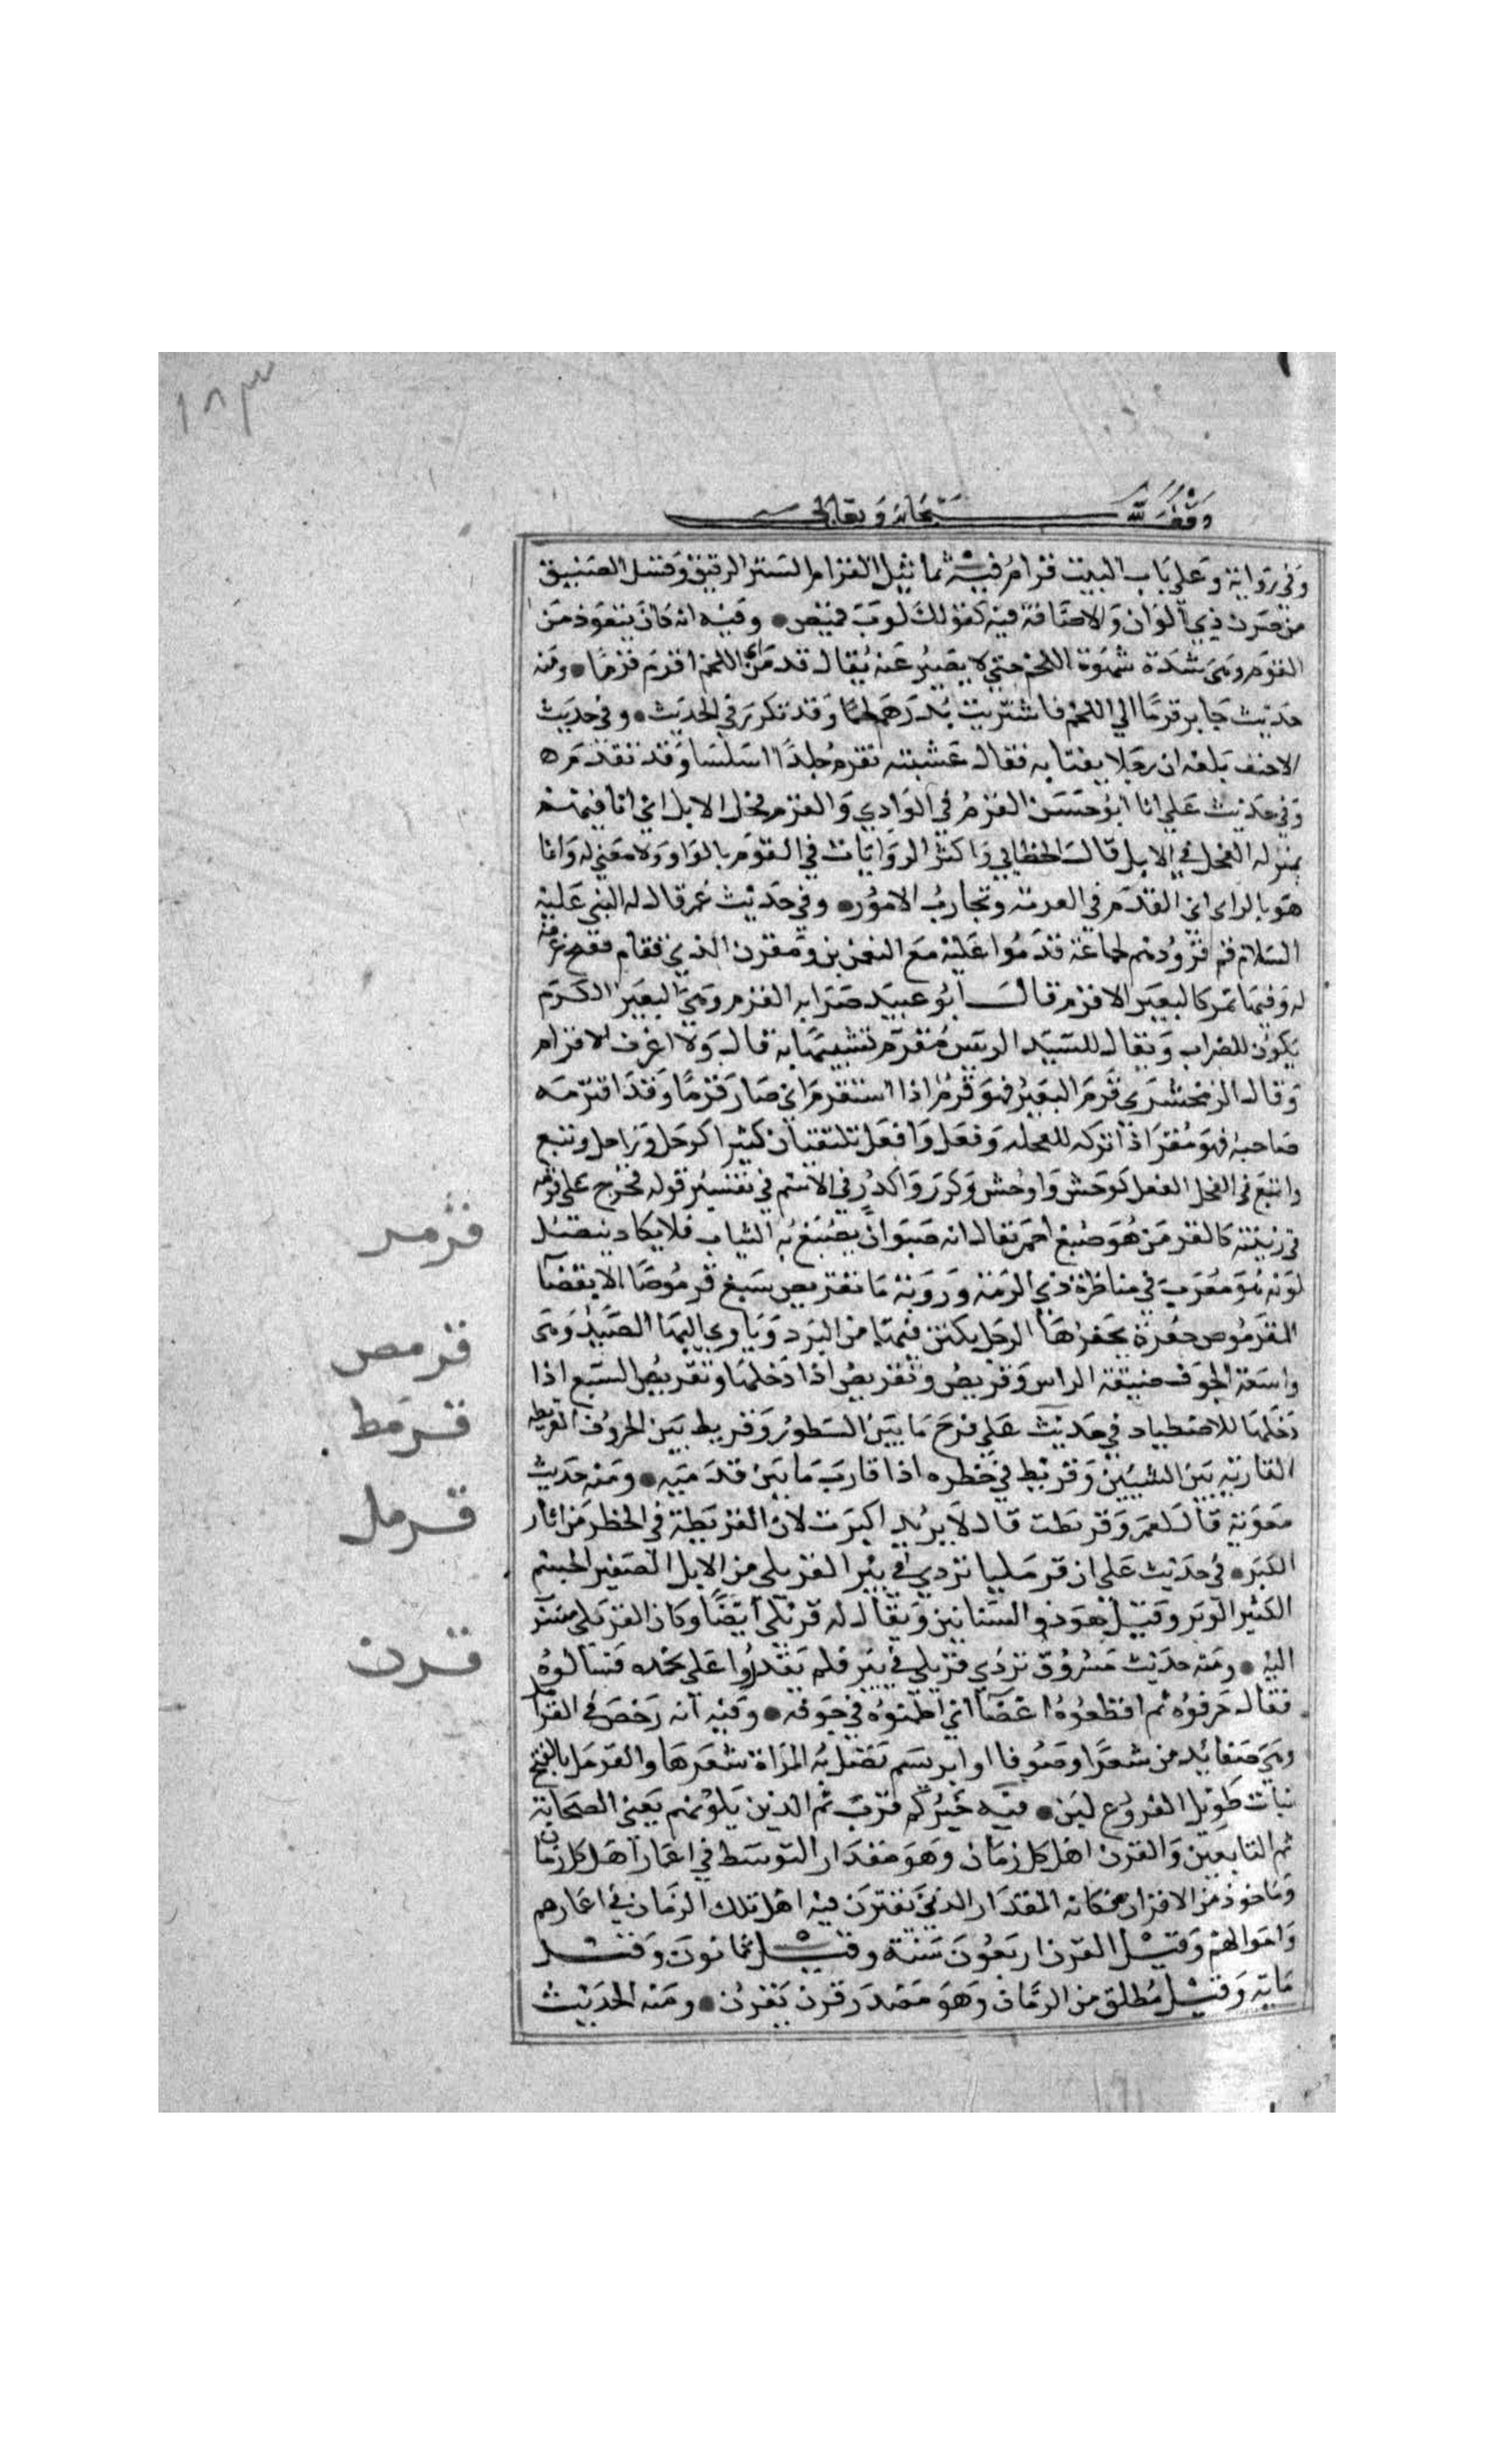 ١٨٣
وقف لله سبحانه وتعالى
وفي رواية وعلي باب البيت قرام فيه تماثيل القرام الستر الرقيق وقيل الصفيق
من صوف ذي الوان والاضافة فيه كقولك ثوب قميص • وفيه انه كان يتعوذ من
القرم وهي شدة شهوة اللحم حتي لا يصبر عنه يقال قدمت الي اللحم اقرم قرما • ومنه
حديث جابر قرما الي اللحم فاشتريت بدرهم لحما وقد تكرر في الحديث • وفي حديث
الاحنف بلغه ان رجلا يغتابه فقال عشيته تقرم جلدا املسا وقد تقدم ه
وفي حديث علي انا ابو حسن القرم في الوادي والقرم فحل الابل اي انا فيهم
بمنزله الفحل في الابل قال الخطابي واكثر الروايات في القوم بالواو ولا معني له وانما
هو بالراء اي المقدم في المعرفة وتجارب الامور • وفي حديث عمر قال له النبي عليه
السلام قم فزودهم لجماعة قدموا عليه مع النعمن بن مقرن المزني فقام ففتح غرفة
له وفيها تمر كالبعير الاقرم قال ابو عبيد صوابه القرم وهي البعير المكرم
يكون للضراب ويقال للسيد الريس مقرم تشبيها به قال ولا اعرف الاقرام
وقال الزمخشري قرم البعير فهو قرم اذا استقرم اي صار قرما وقد اقرمه
صاحبه فهو مقرم اذا تركه للفحله وفعل وافعل تلتقيان كثيرا كوجل واوجل وتبع
واتبع في الفعل كوحش واوحش وكدر واكدر في الاسم في تفسير قوله فخرج علي قومه
في زينته كالقرمز هو صبغ احمر يقال انه حيوان يصبغ به الثياب فلا يكاد ينصل
لونه هو معرب في مناظرة ذي الرمة وروبة ما تقرمص سبع قرموصا الا بقضا
القرموص حفرة يحفرها الرجل يكتن فيها من البرد وياوي اليها الصيد وهي
واسعة الجوف ضيقة الراس وقرمص وتقرمص اذا دخلها وتقرمص السبع اذا
دخلها للاصطياد في حديث علي فرج ما بين السطور وقرمط بين الحروف القرمطة
المقاربة بين الشيين وقرمط في خطوه اذا قارب ما بين قدميه • ومنه حديث
معوية قال لعمر وقرمطت قال لا يريد اكبرت لان القرمطة في الخطو من اثار
الكبر • في حديث علي ان قرمليا تردي في بير القرملي من الابل الصغير الجسم
الكثير الوبر وقيل هو ذو السنامين ويقال له قرملي ايضا وكان القرملي منسوب
اليه • ومنه حديث مسروق تردي قرملي في بير فلم يقدروا علي نحره فسالوه
فقال جوفوه ثم اقطعوه اعضا اي اطعنوه في جوفه • وفيه انه رخص في القرامل
وهي ضفايد من شعرا وصوفا او ابريسم تصل به المراة شعرها والقرمل بالفتح
نبات طويل الفروع لين • فيه خيركم قرني ثم الذين يلونهم يعني الصحابة
ثم التابعين والقرن اهل كل زمان وهو مقدار التوسط في اعمار اهل كل زمان
وماخوذ من الاقران فكانه المقدار الذي يقترن فيه اهل تلك الزمان في اعمارهم
واحوالهم وقيل القرن اربعون سنة وقيل ثمانون وقيل
ماية وقيل مطلق من الزمان وهو مصدر قرن يقرن • ومنه الحديث
قرمز
قرمص
قرمط
قرمل
قرن